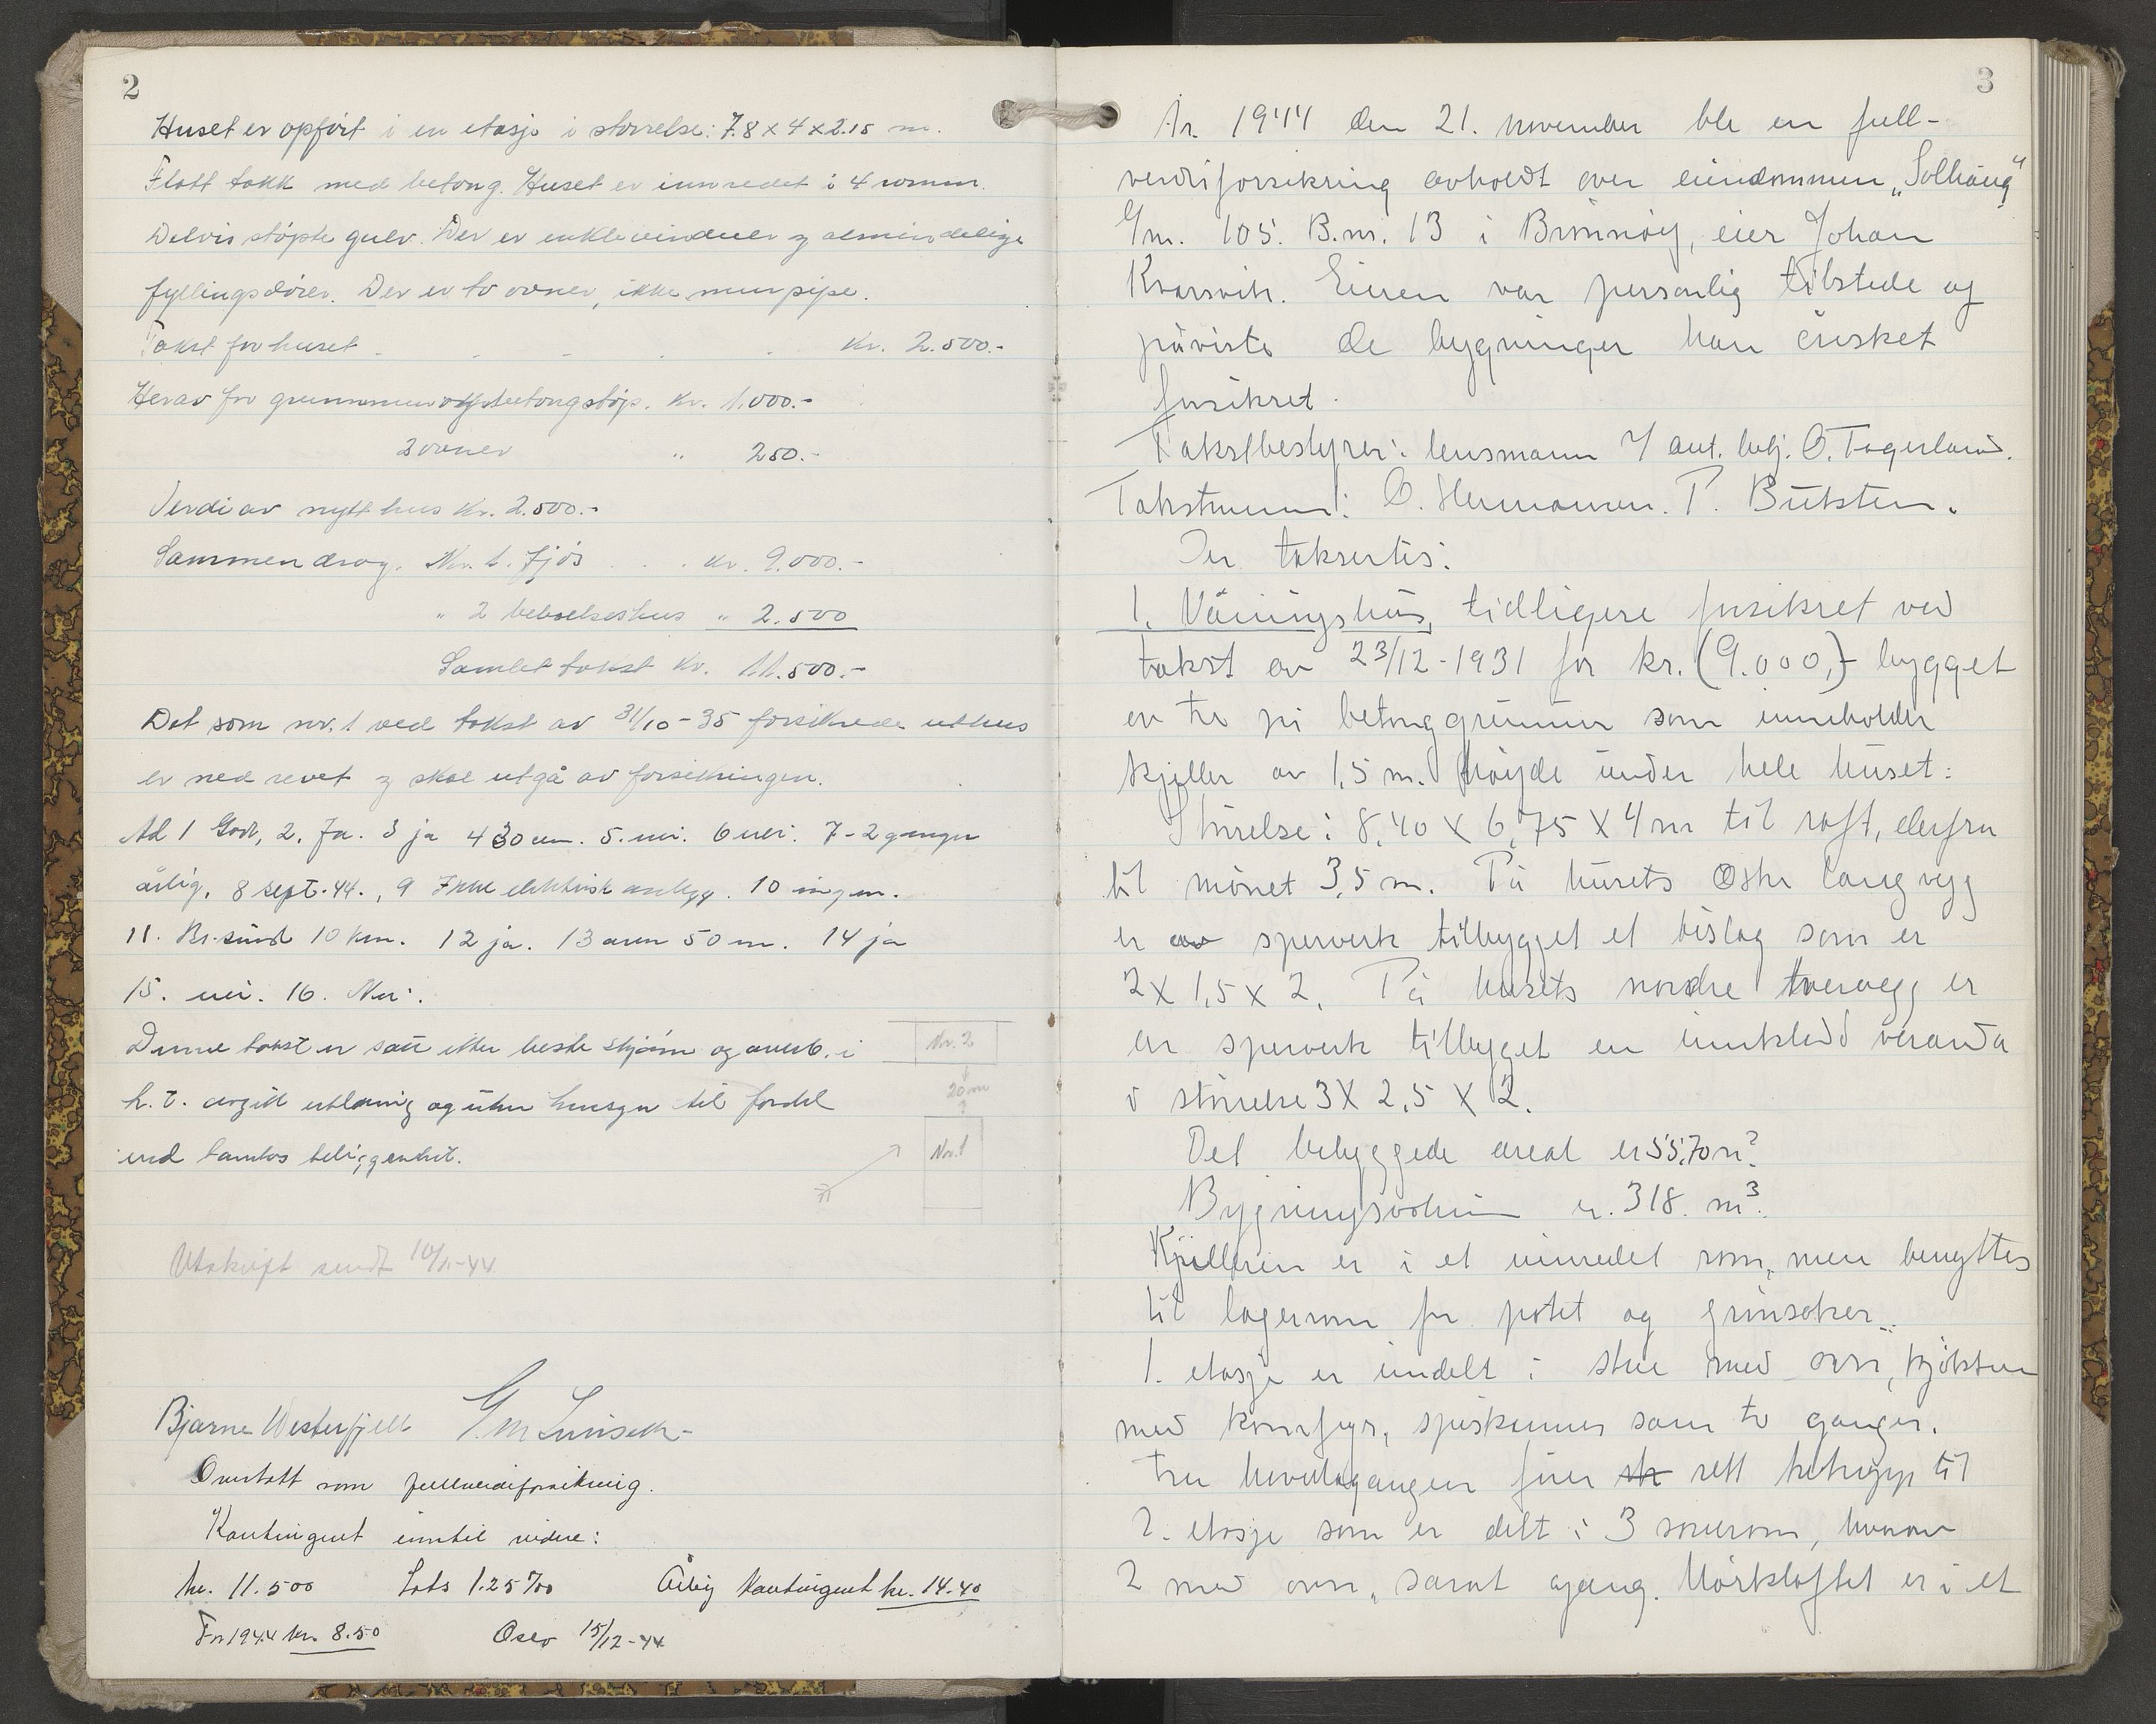 2
Huset er opført i en etasje i størrelse: 7.8 x 4 x 2.15 m.
Flatt takk med betong. Huset er innredet i 4 romm.
Delvis støpte gulv. Der er enkle vinduer og almindelige
fyllingsdører. Der er to ovner, ikke murpipe.
Takst for huset . . . . . Kr. 2.500.-
Herav for grunnmur og betongstøp. Kr. 1.000.-
2 ovner " 250.-
Verdi av nytt hus Kr. 2.500.-
Sammendrag. Nr. 1. Fjøs . . . kr. 9.000.-
" 2 beboelseshus " 2.500
Samlet takst Kr. 11.500.-
Det som nr. 1 ved takst av 31/10-35 forsikrede uthus
er nedrevet og skal utgå av forsikringen.
Ad 1 Godt, 2. Ja. 3 ja 4 30 cm. 5. nei. 6 nei. 7-2 ganger
årlig, 8 sept. 44., 9 Ikke elektrisk anlegg. 10 ingen.
11. Br.sund 10 km. 12 ja. 13 50 m. 14 ja
15. nei. 16. Nei.
Denne takst er satt etter beste skjønn og overb. i
h. t. avgitt og uten hensyn til fordel
ved beliggenhet.
Nr. 2
20 m
Nr. 1
Utskrift sendt 10/11-44
Bjarne Westerfjell
Overtatt som fullverdiforsikring.
Kontingent inntil videre:
kr. 11.500 Sats 1.25 ‰ Årlig kontingent kr. 14.40
For 1944 kr. 8.50 Oslo 15/12-44
3
År 1944 den 21. november ble en full-
verdiforsikring avholdt over eiendommen „Solhaug"
G.nr. 105. B.nr. 13 i Brønnøy, eier Johan
Kvarsvik. Eieren var personlig tilstede og
påviste de bygninger han ønsket
forsikret.
Takstbestyrer: lensmann v/ aut. betj. O. Fagerland.
Takstmenn: O. Hermansen. P.
Der takserties:
1. Våningshus, tidligere forsikret ved
takst av 23/12-1931 for kr. (9.000,-) bygget
av tre på betonggrunnmur som inneholder
kjeller av 1,5 m. høyde under hele huset:
Størrelse: 8,40 x 6,75 x 4 m til raft, derfra
til mønet 3,5 m. På husets østre langvegg
er av sperverk tilbygget et bislag som er
2 x 1,5 x 2. På husets nordre tvervegg er
av sperverk tilbygget en innkledd veranda
i størrelse 3 x 2,5 x 2.
Det bebyggede areal er 55,70 m².
Bygningsvolum er. 318. m³.
Kjelleren er i et uinredet rom, men benyttes
til lagerrom for potet og grønsaker.
1. etasje er inndelt i stue med ovn, kjøkken
med komfyr, spiskammer samt to ganger.
Fra hovedgangen fører rett tretrapp til
2. etasje som er delt i 3 soverom, hvorav
2 med ovn, samt gang. Mørkloftet er i et